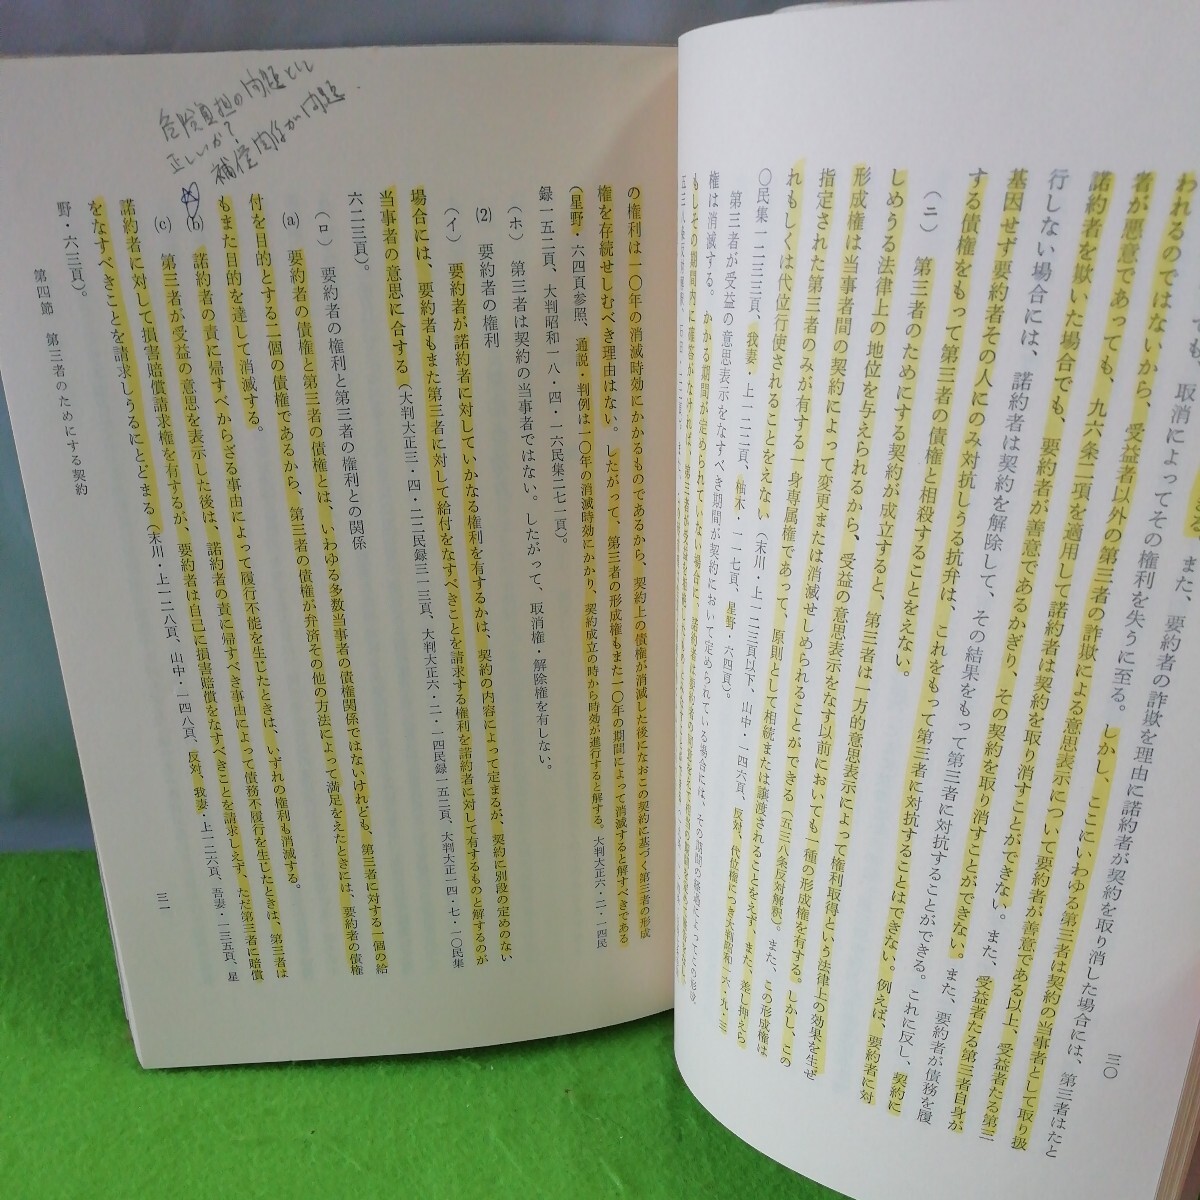 三〇
われるのではないから、受益者以外の第三者の詐欺による意思表示について要約者が善意である以上、受益者たる第三
者が悪意であっても、九六条二項を適用して諾約者は契約を取り消すことができない。また、受益者たる第三者自身が
諾約者を欺いた場合でも、要約者が善意であるかぎり、その契約を取り消すことができない。また、要約者が債務を履
行しない場合には、諾約者は契約を解除して、その結果をもって第三者に対抗することができる。これに反し、契約に
基因せず要約者その人にのみ対抗しうる抗弁は、これをもって第三者に対抗することはできない。例えば、要約者に対
する債権をもって第三者の債権と相殺することをえない。
(ニ) 第三者のためにする契約が成立すると、第三者は一方的意思表示によって権利取得という法律上の効果を生ぜ
しめうる法律上の地位を与えられるから、受益の意思表示をなす以前においても一種の形成権を有する。しかし、この
形成権は当事者間の契約によって変更または消滅せしめられることができる(五三八条反対解釈)。また、この形成権は
指定された第三者のみが有する一身専属権であって、原則として相続または譲渡されることをえず、また、差し押えら
れもしくは代位行使されることをえない(末川・上一二三頁以下、山中・一四六頁、反対、代位権につき大判昭和一六・九・三〇
民集一二三三頁、我妻・上一二二頁、柚木・一一七頁、星野・六四頁)。
第三者が受益の意思表示をなすべき期間が契約において定められている場合には、その期間の経過によってこの形成
権は消滅する。かかる期間が定められていない場合に、
の権利は一〇年の消滅時効にかかるものであるから、契約上の債権が消滅した後になおこの契約に基づく第三者の形成
権を存続せしむべき理由はない。したがって、第三者の形成権もまた一〇年の期間によって消滅すると解すべきである
(星野・六四頁参照、通説・判例は一〇年の消滅時効にかかり、契約成立の時から時効が進行すると解する。大判大正六・二・一四民
録一五二頁、大判昭和一八・四・一六民集二七一頁)。
(ホ) 第三者は契約の当事者ではない。したがって、取消権・解除権を有しない。
(2) 要約者の権利
(イ) 要約者が諾約者に対していかなる権利を有するかは、契約の内容によって定まるが、契約に別段の定めのない
場合には、要約者もまた第三者に対して給付をなすべきことを請求する権利を諾約者に対して有するものと解するのが
当事者の意思に合する(大判大正三・四・二二民録三一三頁、大判大正六・二・一四民録一五二頁、大判大正一四・七・一〇民集
六二三頁)。
(ロ) 要約者の権利と第三者の権利との関係
(a) 要約者の債権と第三者の債権とは、いわゆる多数当事者の債権関係ではないけれども、第三者に対する一個の給
付を目的とする二個の債権であるから、第三者の債権が弁済その他の方法によって満足をえたときには、要約者の債権
もまた目的を達して消滅する。
(b) 諾約者の責に帰すべからざる事由によって履行不能を生じたときは、いずれの権利も消滅する。
(c) 第三者が受益の意思を表示した後は、諾約者の責に帰すべき事由によって債務不履行を生じたときは、第三者は
諾約者に対して損害賠償請求権を有するが、要約者は自己に損害賠償をなすべきことを請求しえず、ただ第三者に賠償
をなすべきことを請求しうるにとどまる(末川・上一二八頁、山中・一四八頁、反対、我妻・上一二六頁、吾妻・一三五頁、星
野・六三頁)。
第四節 第三者のためにする契約
三一
危険負担の問題として
正しいか?
補償関係が問題